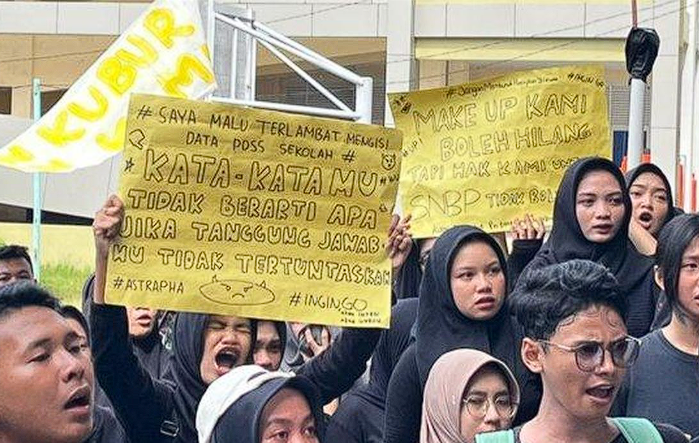 KUBUR
# SAYA MALU TERLAMBAT MENGISI
DATA PDSS SEKOLAH #
KATA-KATA MU
TIDAK BERARTI APA
JIKA TANGGUNG JAWAB
MU TIDAK TERTUNTASKAN
#ASTRAPHA
#INGIN,GO
MAKE UP KAMI
BOLEH HILANG
TAPI HAK KAMI
SNBP TIDAK